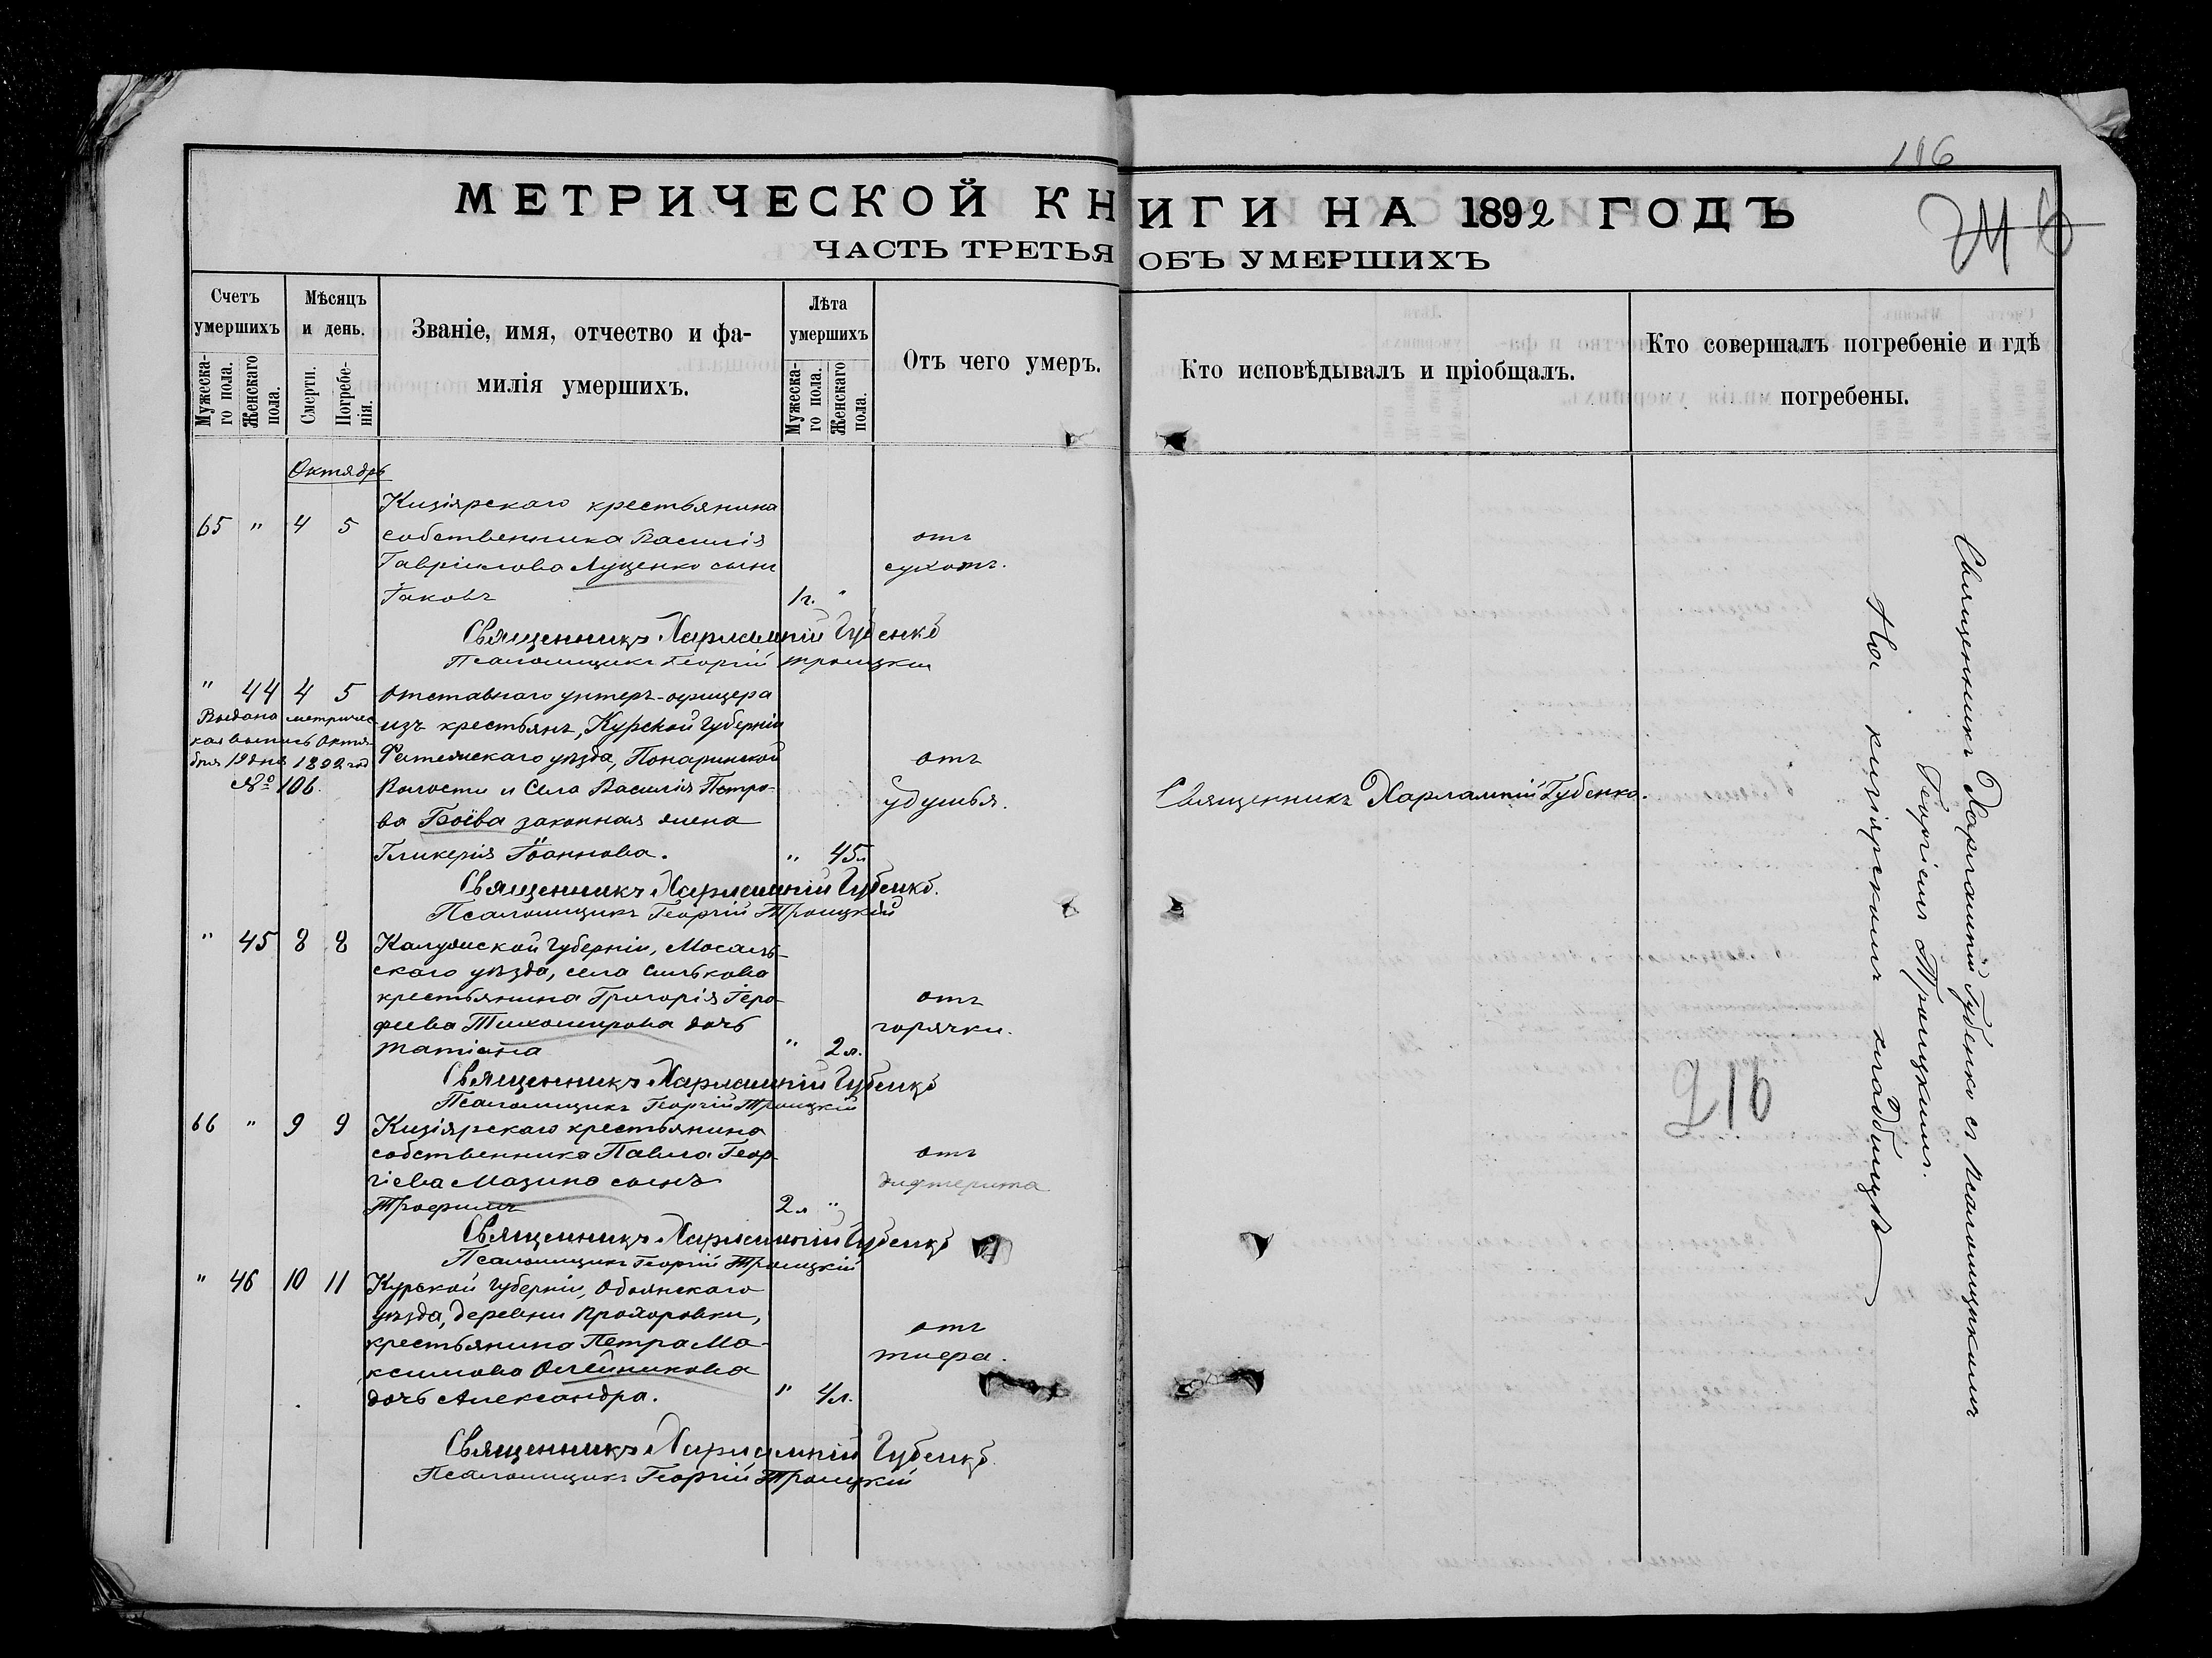 116
МЕТРИЧЕСКОЙ КНИГИ НА 1892 ГОДЪ
ЧАСТЬ ТРЕТЬЯ ОБЪ УМЕРШИХЪ
Счетъ умершихъ
Мужеска-го пола.
Женскаго пола.
Мѣсяцъ и день.
Смерти.
Погребе-нія.
Званіе, имя, отчество и фа-
милія умершихъ.
Лѣта умершихъ
Мужеска-го пола.
Женскаго пола.
Отъ чего умеръ.
Кто исповѣдывалъ и пріобщалъ.
Кто совершалъ погребеніе и гдѣ
погребены.
Октябрь
Кизіярскаго крестьянина
65 " 4 5 собственника Василія отъ
Гавріилова Луценко сынъ сухотъ.
Іаковъ 1 г. "
Священникъ Харлампій Губенко
Псаломщикъ Георгій Троицкій
" 44 4 5 Отставнаго унтеръ-офицера
Выдана метричес-
кая выпись Октя-
бря 19 дня 1892 год
№ 106.
изъ крестьянъ, Курской Губерніи
Фатежскаго уѣзда, Понаринской отъ
Волости и Села Василія Петро- удушья.
ва Боева законная жена
Гликерія Іоаннова. " 45 л
Священникъ Харлампій Губенко.
Священникъ Харлампій Губенко.
Псаломщикъ Георгій Троицкій
" 45 8 8 Калужской Губерніи, Мосаль-
скаго уѣзда, села Силькова
крестьянина Григорія Іеро- отъ
феева Тихомирова дочь горячки.
Татіана " 2 л.
Священникъ Харлампій Губенко
Псаломщикъ Георгій Троицкій
66 " 9 9 Кизіярскаго крестьянина
собственника Павла Геор- отъ
гіева Мазина сынъ дифтерита
Трофимъ 2 л "
Священникъ Харлампій Губенко
Псаломщикъ Георгій Троицкій
" 46 10 11 Курской Губерніи, Обоянскаго
уѣзда, деревни Прохоровки,
крестьянина Петра Ма- отъ
ксимова Олейникова тифа.
дочь Александра. " 4 л.
Священникъ Харлампій Губенко.
Псаломщикъ Георгій Троицкій
Священникъ Харлампій Губенко съ псаломщикомъ
Георгіемъ Троицкимъ.
На кизіярскомъ кладбищѣ
216